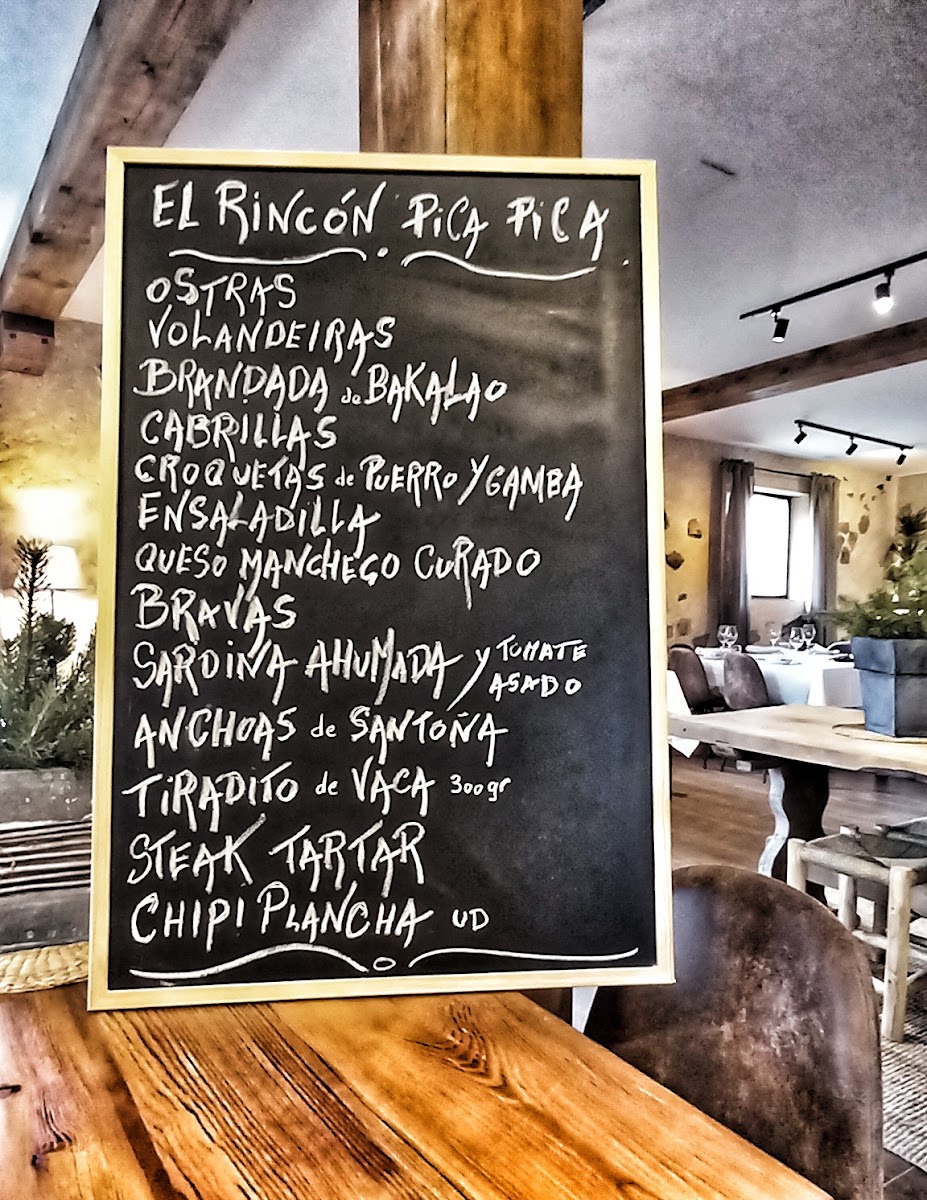 EL RINCÓN PICA PICA
OSTRAS
VOLANDEIRAS
BRANDADA de BAKALAO
CABRILLAS
CROQUETAS de PUERRO Y GAMBA
ENSALADILLA
QUESO MANCHEGO CURADO
BRAVAS
SARDINA AHUMADA Y TOMATE
ASADO
ANCHOAS de SANTOÑA
TIRADITO de VACA 300gr
STEAK TARTAR
CHIPI PLANCHA UD